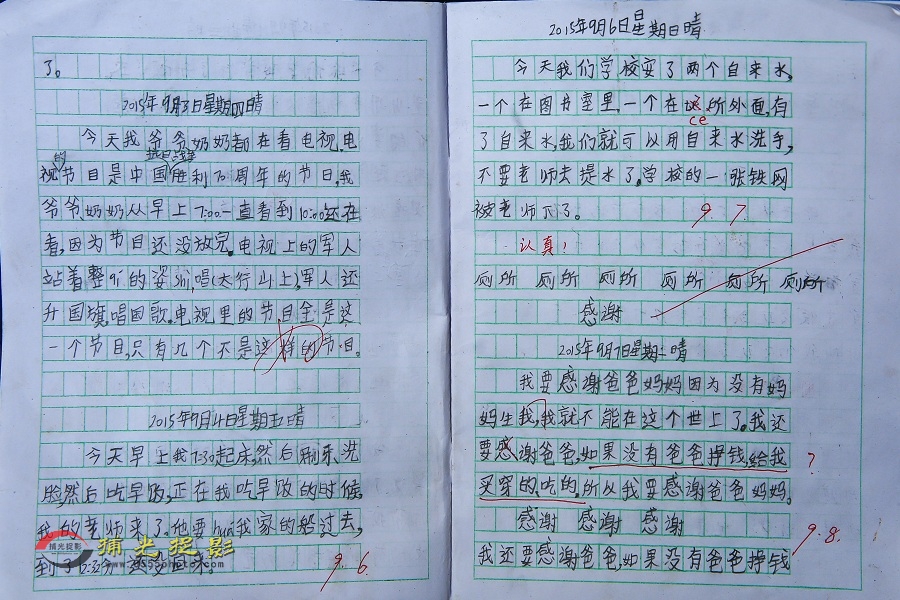 了。
2015年9月3日星期四晴
今天我爷爷奶奶都在看电视,电
视的节目是中国抗日战争胜利70周年的节日,我
爷爷奶奶从早上7:00一直看到10:00还在
看,因为节目还没放完。电视上的军人
站着整齐的姿势,唱《太行山上》,军人还
升国旗,唱国歌。电视里的节目全是这
一个节目,只有几个不是这样的节目。
2015年9月4日星期五晴
今天早上我7:30起床,然后刷牙洗
脸然后吃早饭,正在我吃早饭的时候,
我的老师来了。他要 我家的船过去,
到了 还没回来。
9. 6.
捕光捉影
2015年9月6日星期日晴
今天我们学校安了两个自来水,
一个在图书室里,一个在 所外面,有
ce
了自来水,我们就可以用自来水洗手,
不要老师去提水了。学校的一张铁网
被老师 了。
9. 7.
认真!
厕所 厕所 厕所 厕所 厕所 厕所
感谢
2015年9月7日星期二晴
我要感谢爸爸妈妈因为没有妈
妈生我,我就不能在这个世上了。我还
要感谢爸爸,如果没有爸爸挣钱,给我
?
买穿的,吃的,所以我要感谢爸爸妈妈。
感谢 感谢 感谢
9. 8.
我还要感谢爸爸,如果没有爸爸挣钱